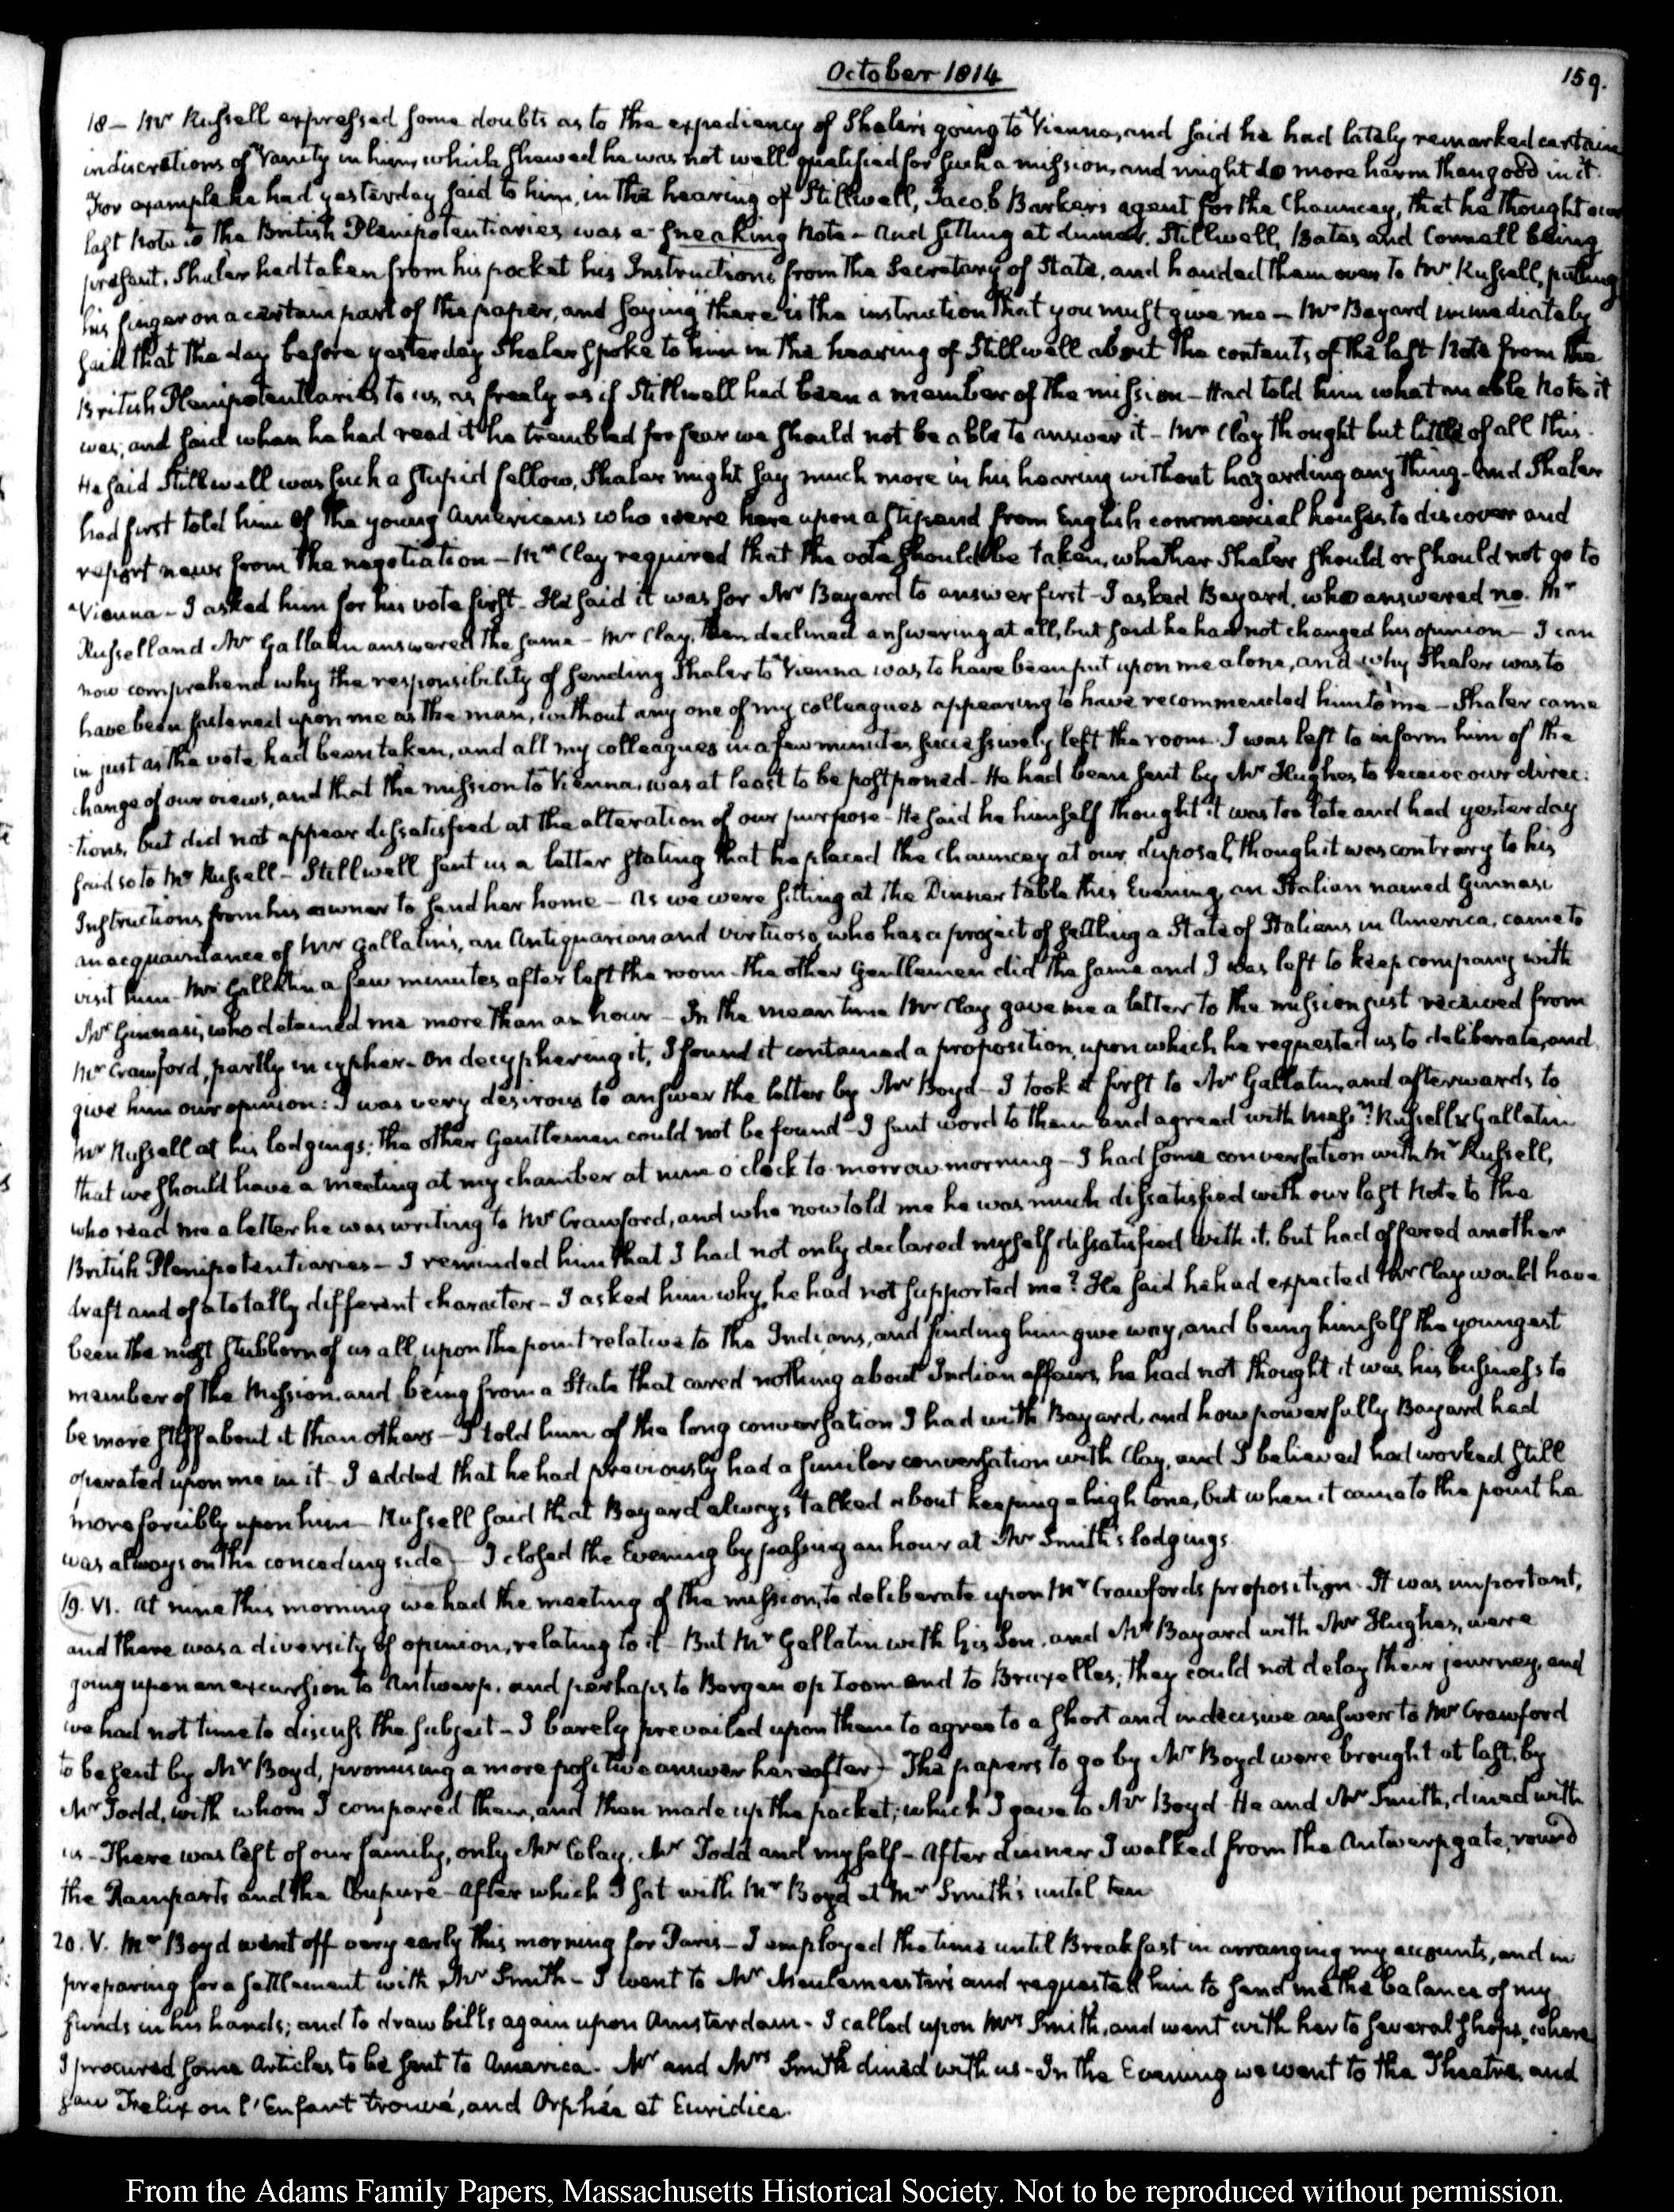 October 1814
159.
18 – Mr Russell expressed some doubts as to the expediency of Shaler's going to Vienna, and said he had lately remarked certain
indiscretions of Vanity in him, which shewed he was not well qualified for such a mission, and might do more harm than good in it.
For example he had yesterday said to him, in the hearing of Stillwell, Jacob Barker's agent for the Chauncey, that he thought our
last Note to the British Plenipotentiaries was a sneaking Note – And sitting at dinner, Stillwell, Bates and Connell being
present, Shaler had taken from his pocket his Instructions from the Secretary of State, and handed them over to Mr Russell, putting
his finger on a certain part of the paper, and saying "there is the instruction that you must give me – Mr Bayard immediately
said that the day before yesterday Shaler spoke to him in the hearing of Stillwell about the contents of the last Note from the
British Plenipotentiaries to us, as freely as if Stillwell had been a member of the mission – Had told him what an able Note it
was, and said when he had read it he trembled for fear we should not be able to answer it – Mr Clay thought but little of all this.
He said Stillwell was such a stupid fellow, Shaler might say much more in his hearing without hazarding any thing – And Shaler
had first told him of the young Americans who were here upon a stipend from English commercial houses to discover and
report news from the negotiation – Mr Clay required that the vote should be taken, whether Shaler should or should not go to
Vienna – I asked him for his vote first – He said it was for Mr Bayard to answer first – I asked Bayard, who answered no. Mr
Russell and Mr Gallatin answered the same – Mr Clay, then declined answering at all, but said he had not changed his opinion – I can
now comprehend why the responsibility of sending Shaler to Vienna was to have been put upon me alone, and why Shaler was to
have been fastened upon me as the man, without any one of my colleagues appearing to have recommended him to me – Shaler came
in just as the vote had been taken, and all my colleagues in a few minutes successively left the room. I was left to inform him of the
change of our views, and that the mission to Vienna, was at least to be postponed – He had been sent by Mr Hughes to receive our direc:
:tions, but did not appear dissatisfied at the alteration of our purpose – He said he himself thought it was too late and had yesterday
said so to Mr Russell – Stillwell sent us a letter stating that he placed the Chauncey at our disposal, though it was contrary to his
Instructions from his owner to send her home – As we were sitting at the Dinner table this Evening, an Italian named Ginnasi
an acquaintance of Mr Gallatin's, an Antiquarian and virtuoso, who has a project of settling a State of Italians in America, came to
visit him – Mr Gallatin a few minutes after left the room – the other Gentlemen did the same and I was left to keep company with
Mr Ginnasi, who detained me more than an hour – In the mean time Mr Clay gave me a letter to the mission just received from
Mr Crawford, partly in cypher – On decyphering it, I found it contained a proposition, upon which he requested us to deliberate, and
give him our opinion: I was very desirous to answer the letter by Mr Boyd – I took it first to Mr Gallatin, and afterwards to
Mr Russell at his lodgings: the other Gentlemen could not be found – I sent word to them and agreed with Messrs: Russell & Gallatin
that we should have a meeting at my chamber at nine o'clock to-morrow morning – I had some conversation with Mr Russell,
who read me a letter he was writing to Mr Crawford, and who now told me he was much dissatisfied with our last Note to the
British Plenipotentiaries – I reminded him that I had not only declared myself dissatisfied with it, but had offered another
draft and of a totally different character – I asked him why he had not supported me? He said he had expected Mr Clay would have
been the most stubborn of us all, upon the point relative to the Indians, and finding him give way, and being himself the youngest
member of the Mission, and being from a State that cared nothing about Indian affairs, he had not thought it was his business to
be more stiff about it than others – I told him of the long conversation I had with Bayard, and how powerfully Bayard had
operated upon me in it – I added that he had previously had a similar conversation with Clay, and I believed had worked still
more forcibly upon him – Russell said that Bayard always talked about keeping a high tone, but when it came to the point he
was always on the conceding side – I closed the Evening by passing an hour at Mr Smith's lodgings.
19. VI. At nine this morning we had the meeting of the mission, to deliberate upon Mr Crawford's proposition. It was important,
and there was a diversity of opinion, relating to it – But Mr Gallatin with his Son, and Mr Bayard with Mr Hughes, were
going upon an excursion to Antwerp, and perhaps to Bergen op Zoom and to Bruxelles; they could not delay their journey, and
we had not time to discuss the subject – I barely prevailed upon them to agree to a short and indecisive answer to Mr Crawford
to be sent by Mr Boyd, promising a more positive answer hereafter – The papers to go by Mr Boyd were brought at last, by
Mr Todd, with whom I compared them, and then made up the packet; which I gave to Mr Boyd – He and Mr Smith, dined with
us – There was left of our family, only Mr Clay, Mr Todd and myself – After dinner I walked from the Antwerp gate, round
the Ramparts and the Coupure – After which I sat with Mr Boyd at Mr Smith's until ten
20. V. Mr Boyd went off very early this morning for Paris – I employed the time until Breakfast in arranging my accounts, and in
preparing for a settlement with Mr Smith – I went to Mr Meulemeester's and requested him to send me the balance of my
funds in his hands; and to draw bills again upon Amsterdam – I called upon Mrs Smith, and went with her to several shops, where
I procured some Articles to be sent to America – Mr and Mrs Smith dined with us – In the Evening we went to the Theatre, and
saw Felix ou l'Enfant trouvé, and Orphée et Euridice.
From the Adams Family Papers, Massachusetts Historical Society. Not to be reproduced without permission.